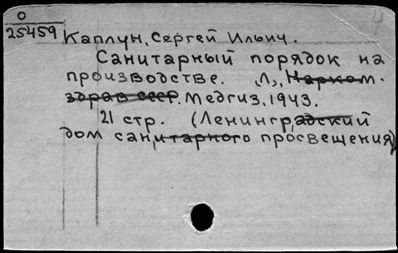 0
25459
Каплун, Сергей Ильич.
Санитарный порядок на
производстве. Л, Нарком.
здрав ссср. Медгиз, 1943.
21 стр. (Ленинградский
дом санитарного просвещения)